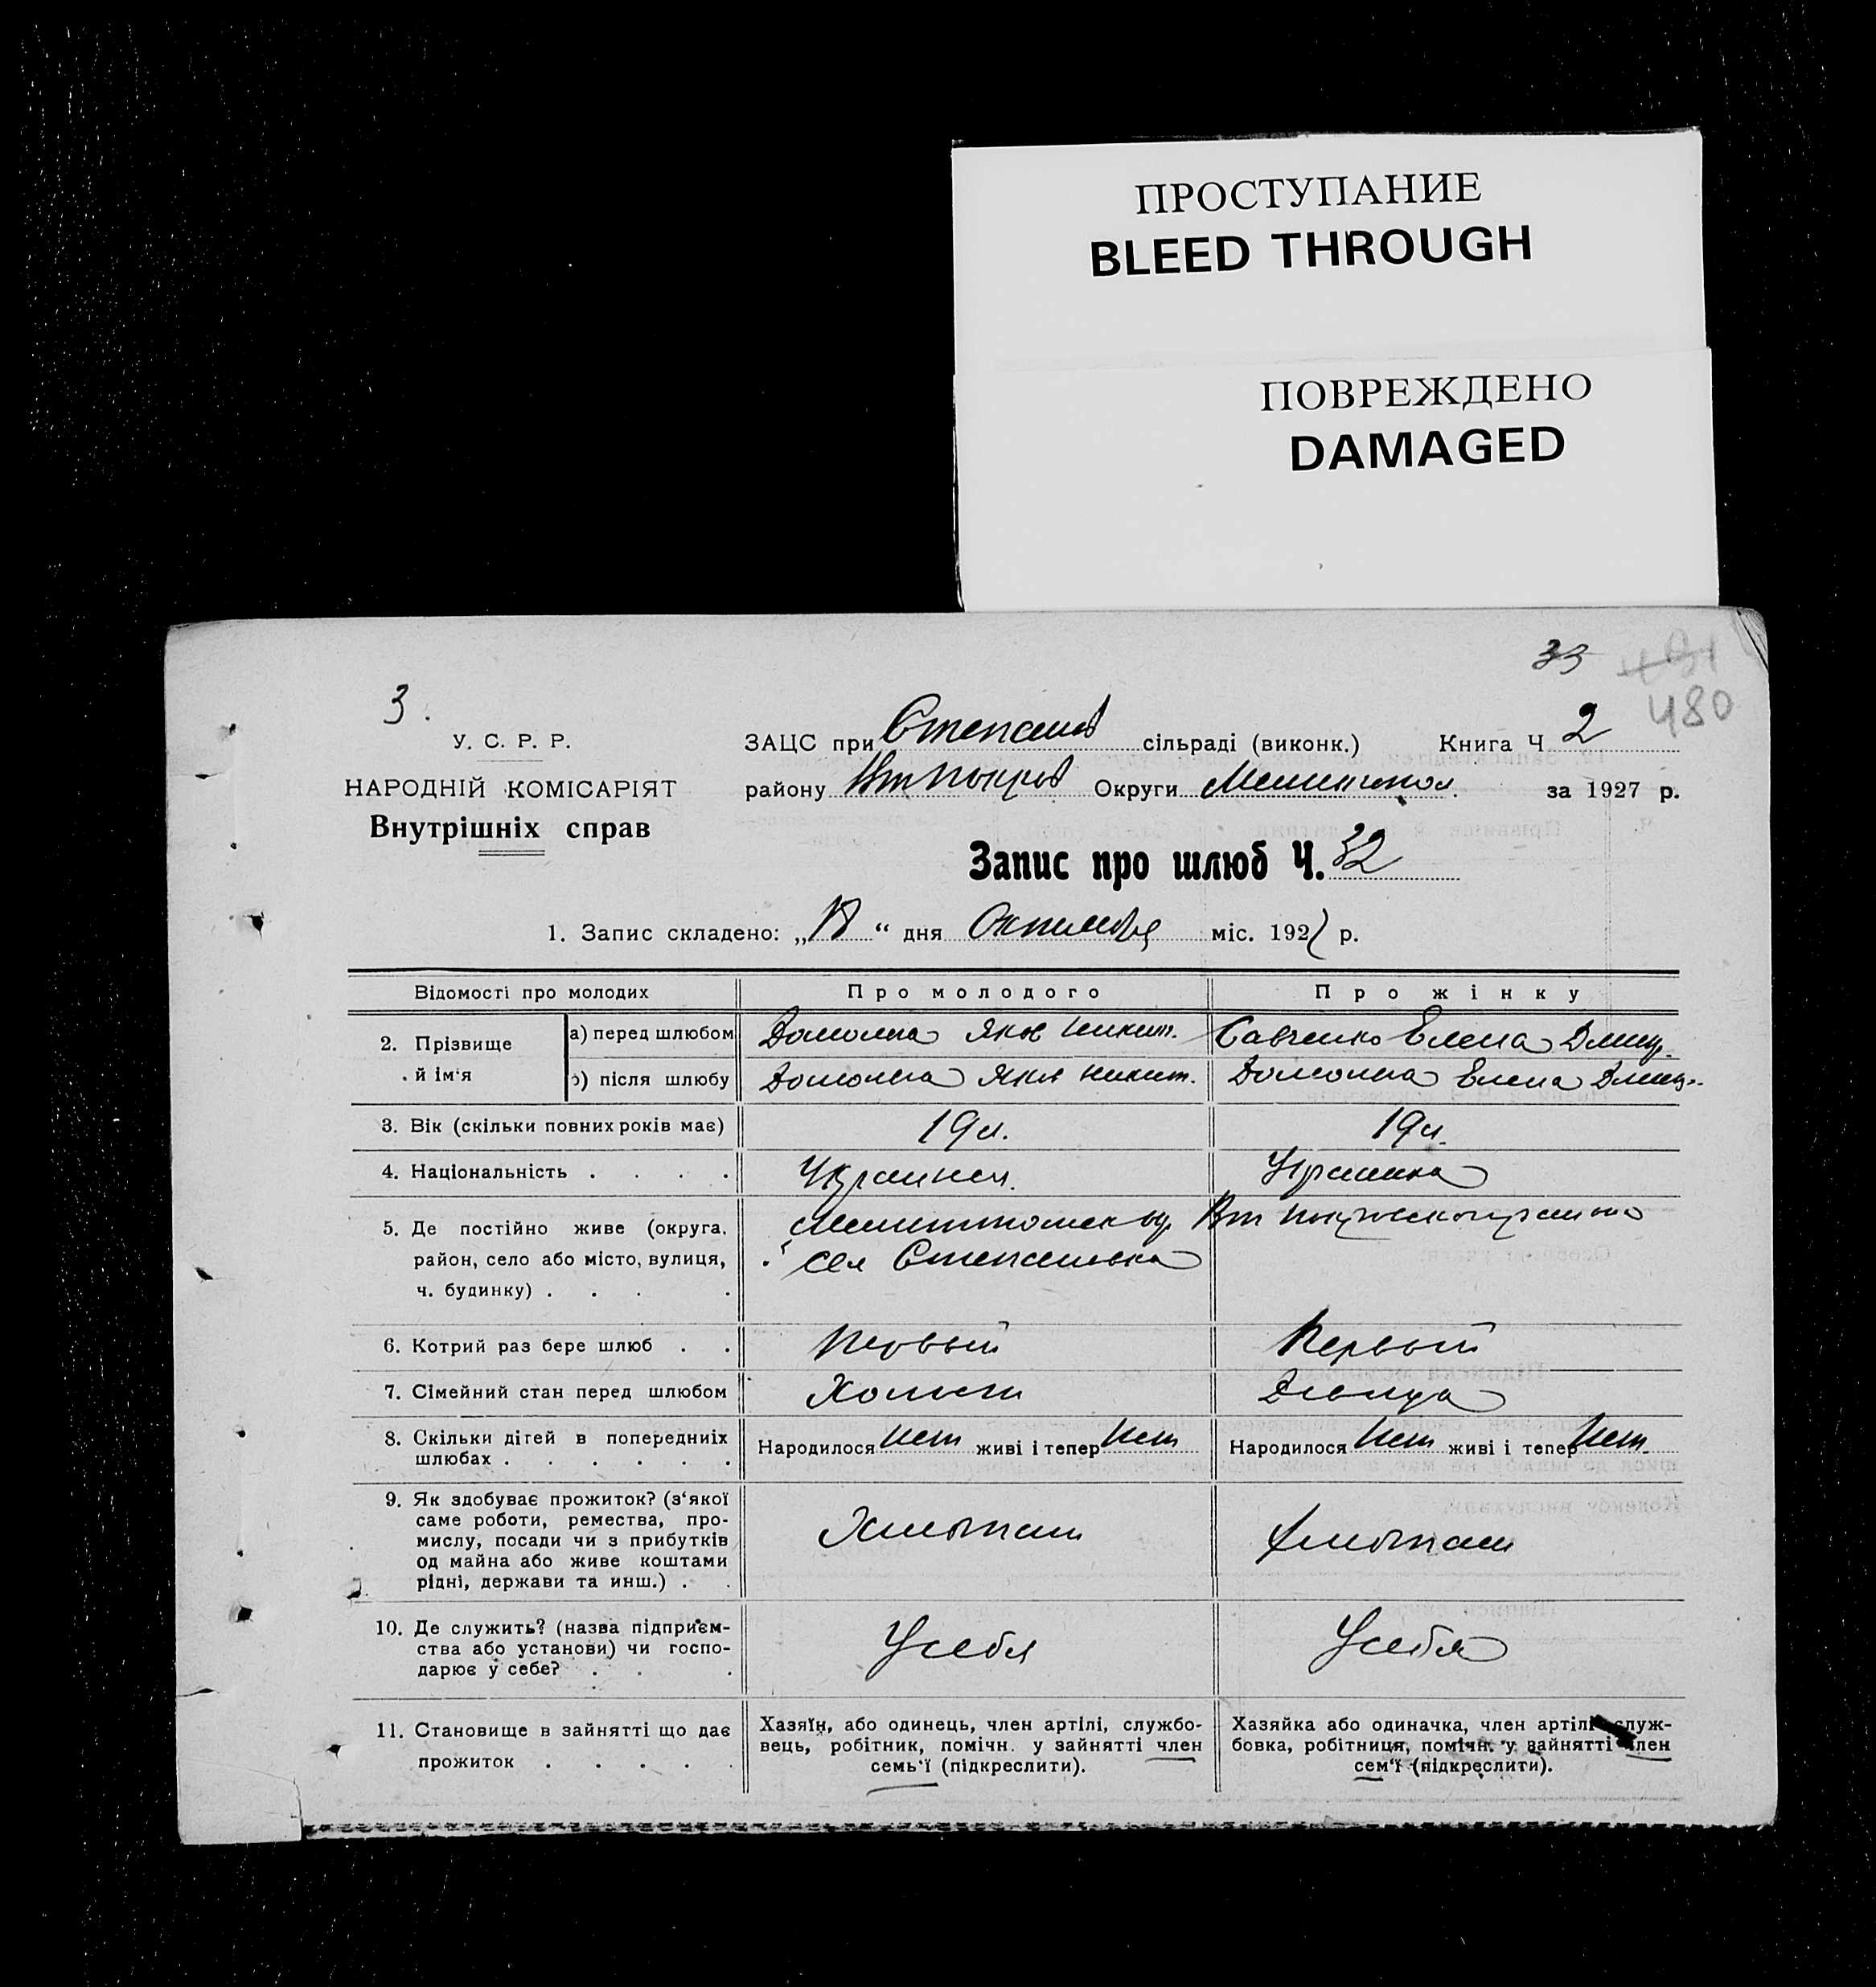 ПРОСТУПАНИЕ
BLEED THROUGH
ПОВРЕЖДЕНО
DAMAGED
33
480
3.
У. С. Р. Р.
НАРОДНІЙ КОМІСАРІЯТ
Внутрішніх справ
ЗАЦС при Степанов сільраді (виконк.) Книга Ч 2
району Округи за 1927 р.
Запис про шлюб Ч. 32
1. Запис складено: „ “ дня Октября міс. 1927 р.
Відомості про молодих Про молодого Про жінку
2. Прізвище й ім‘я
а) перед шлюбом Яков Никит. Савченко Елена Дмитр.
б) після шлюбу Яков Никит. Елена Дмитр.
3. Вік (скільки повних років має) 19 л. 19 л.
4. Національність . . . . Украинец. Украинка
5. Де постійно живе (округа, район, село або місто, вулиця, ч. будинку) . . . .
село Степановка
6. Котрий раз бере шлюб . . Первый Первый
7. Сімейний стан перед шлюбом Холост Девица
8. Скільки дітей в попередніх шлюбах . . . . . .
Народилося Нет живі і тепер Нет Народилося Нет живі і тепер Нет
9. Як здобуває прожиток? (з‘якої
саме роботи, ремества, про-
мислу, посади чи з прибутків
од майна або живе коштами
рідні, держави та инш.) . .
10. Де служить? (назва підприєм-
ства або установи) чи госпо-
дарює у себе? . . .
У себя У себя
11. Становище в зайнятті що дає
прожиток . . . . .
Хазяїн, або одинець, член артілі, службо-
вець, робітник, помічн. у зайнятті член
семь‘ї (підкреслити).
Хазяйка або одиначка, член артілі служ-
бовка, робітниця, помічн. у зайнятті член
сем‘ї (підкреслити).